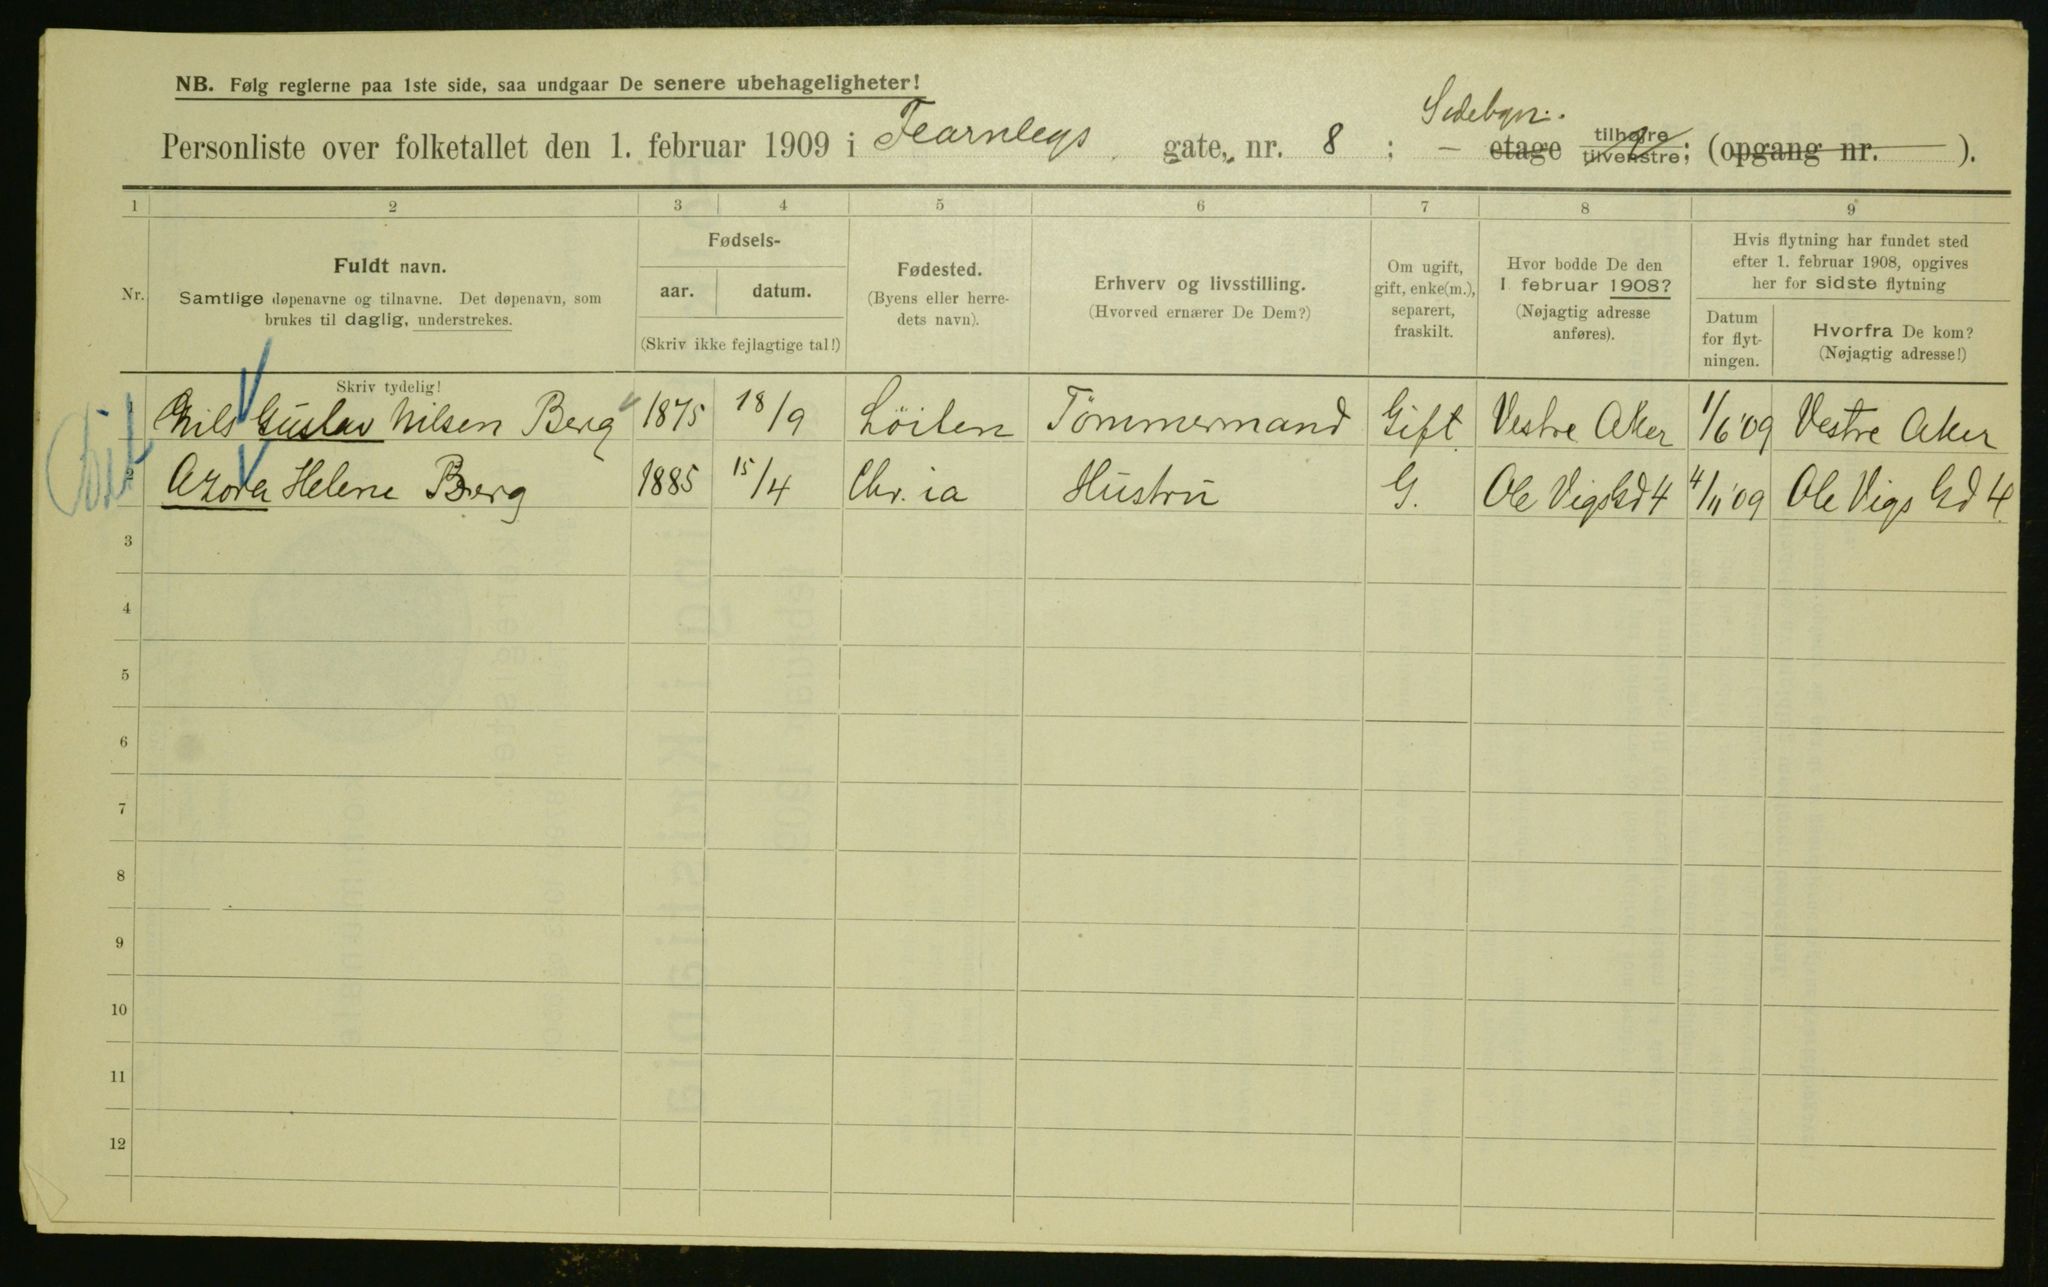 NB. Følg reglerne paa 1ste side, saa undgaar De senere ubehageligheter!
Sidebgn.
Personliste over folketallet den 1. februar 1909 i Fearnleys gate, nr. 8 ; – etage tilhøire tilvenstre; (opgang nr. ).
1 2 3 4 5 6 7 8 9
Nr.
Fuldt navn.
Samtlige døpenavne og tilnavne. Det døpenavn, som
brukes til daglig, understrekes.
Skriv tydelig!
Fødsels-
aar. datum.
(Skriv ikke fejlagtige tal!)
Fødested.
(Byens eller herre-
dets navn).
Erhverv og livsstilling.
(Hvorved ernærer De Dem?)
Om ugift,
gift, enke(m.),
separert,
fraskilt.
Hvor bodde De den
1 februar 1908?
(Nøjagtig adresse
anføres).
Hvis flytning har fundet sted
efter 1. februar 1908, opgives
her for sidste flytning
Datum
for flyt-
ningen.
Hvorfra De kom?
(Nøjagtig adresse!)
1 Nils Gustav Nilsen Berg 1875 18/9 Löiten Tömmermand Gift Vestre Aker 1/6 '09 Vestre Aker
2 Azora Helene Berg 1885 15/4 Chr.ia Hustru G. Ole Vigs Gd 4 4/11 '09 Ole Vigs Gd 4
3
4
5
6
7
8
9
10
11
12